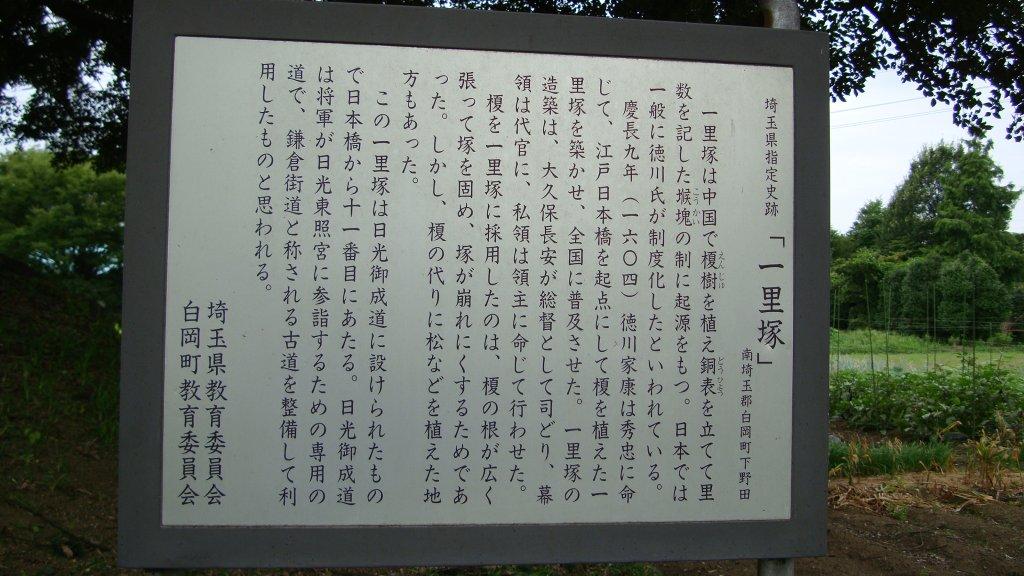 埼玉県指定史跡
「一里塚」
南埼玉郡白岡町下野田
一里塚は中国で榎樹を植え銅表を立てて里
えんじゅ
どうひょう
数を記した堠塊の制に起源をもつ。日本では
こうかい
一般に徳川氏が制度化したといわれている。
慶長九年（一六〇四）徳川家康は秀忠に命
じて、江戸日本橋を起点にして榎を植えた一
里塚を築かせ、全国に普及させた。一里塚の
造築は、大久保長安が総督として司どり、幕
領は代官に、私領は領主に命じて行わせた。
榎を一里塚に採用したのは、榎の根が広く
張って塚を固め、塚が崩れにくするためであ
った。しかし、榎の代りに松などを植えた地
方もあった。
この一里塚は日光御成道に設けられたもの
で日本橋から十一番目にあたる。日光御成道
は将軍が日光東照宮に参詣するための専用の
道で、鎌倉街道と称される古道を整備して利
用したものと思われる。
埼玉県教育委員会
白岡町教育委員会